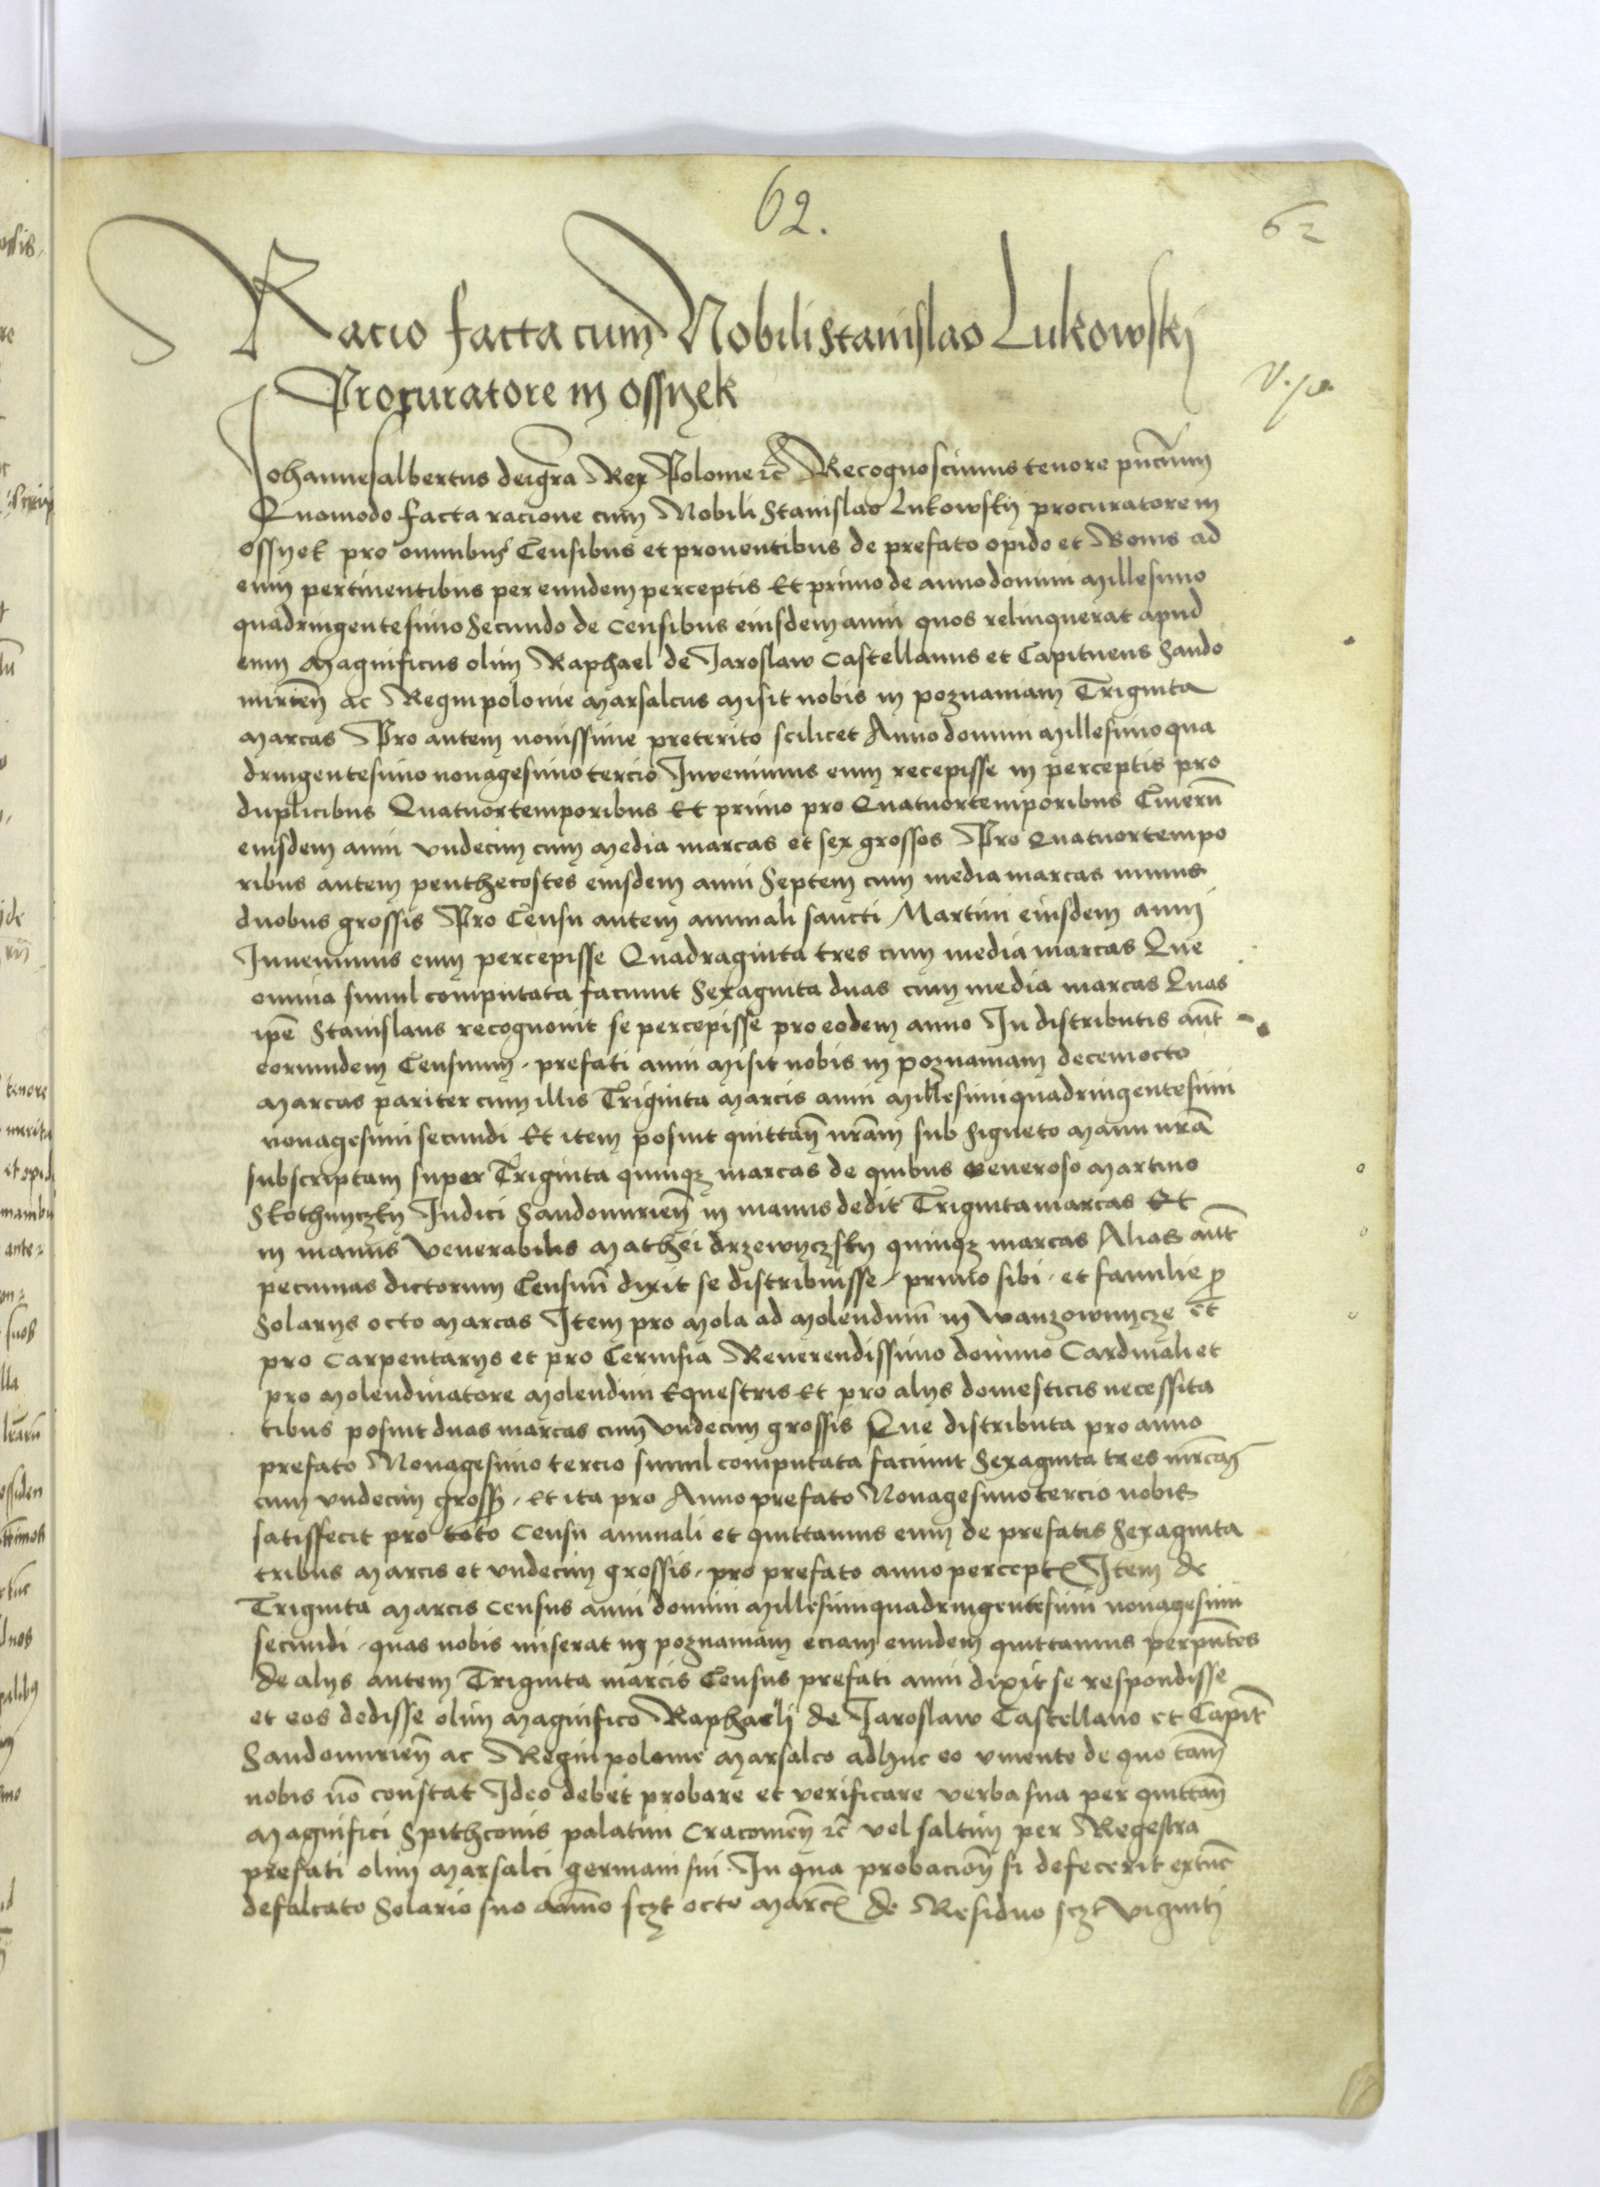 62.
62
Racio facta cum Nobili Stanislao Lukowskij
Procuratore in Ossyek
Johannes albertus dei gra Rex Polonie rc Recognoscimus tenore pntium
Quomodo facta racione cum Nobili Stanislao Lukowskij procuratore in
Ossyek pro omnibus Censibus et proventibus de prefato opido et Bonis ad
eum pertinentibus per eundem perceptis Et primo de anno domini Millesimo
quadringentesimo Secundo de Censibus eiusdem anni quos relinquerat apud
eum Magnificus olim Raphael de Jaroslaw Castellanus et Capitneus Sando
mirien ac Regni polonie Marsalcus Misit nobis in poznaniam Triginta
Marcas Pro autem novissime preterito scilicet Anno domini Millesimo qua
dringentesimo nonagesimo tercio Invenimus eum recepisse in perceptis pro
duplicibus Quatuortemporibus Et primo pro Quatuortemporibus Cinerum
eiusdem anni undecim cum media marcas et sex grossos Pro Quatuortempo
ribus autem penthecostes eiusdem anni Septem cum media marcas minus
duobus grossis Pro Censu autem annuali sancti Martini eiusdem anni
Invenimus eum percepisse Quadraginta tres cum media marcas Que
omnia simul computata faciunt Sexaginta duas cum media marcas Quas
ipe Stanislaus recognovit se percepisse pro eodem anno In distributis aut
eorumdem Censuum prefati anni Misit nobis in poznaniam decemocto
Marcas pariter cum illis Triginta Marcis anni Millesimiquadringentesimi
nonagesimi secundi Et item posuit quittan nram sub Signeto Manu nra
subscriptam super Triginta quinqz marcas de quibus Generoso Martino
Skothnyczky Iudici Sandomirien in manus dedit Triginta marcas Et
in manus Venerabilis Mathei drzewyczsky quinqz marcas Alias aut
pecunias dictorum Censuum dixit se distribuisse, primo sibi, et familie p
Solarys octo Marcas Item pro Mola ad Molendinu in Wanzownycze et
pro Carpentarys et pro Cervisia Reverendissimo domino Cardinali et
pro Molendinatore Molendini Equestris Et pro alys domesticis necessita
tibus posuit duas marcas cum Undecim grossis Que distributa pro anno
prefato Nonagesimo tercio simul computata faciunt Sexaginta tres mrcas
cum undecim gross, et ita pro Anno prefato Nonagesimo tercio nobis
satisfecit pro toto Censu annuali et quittamus eum de prefatis Sexaginta
tribus Marcis et undecim grossis, pro prefato anno percept Item de
Triginta Marcis Census anni domini Millesimiquadringentesimi nonagesimi
secundi, quas nobis miserat in poznaniam eciam eundem quittamus per pntes
de alys autem Triginta marcis Census prefati anni dixit se respondisse
et eos dedisse olim Magnifico Raphaeli de Jaroslaw Castellano et Capit
Sandomirien ac Regni polonie Marsalco adhuc eo vivente de quo tam
nobis no constat Ideo debet probare et verificare verba sua per quittan
Magnifici Spithconis palatini Cracovien rc vel saltim per Regestra
prefati olim Marsalci germani sui, In qua probacion si defecerit extunc
defalcato Solario suo annuo sczt octo Marc de Residuo sczt viginti